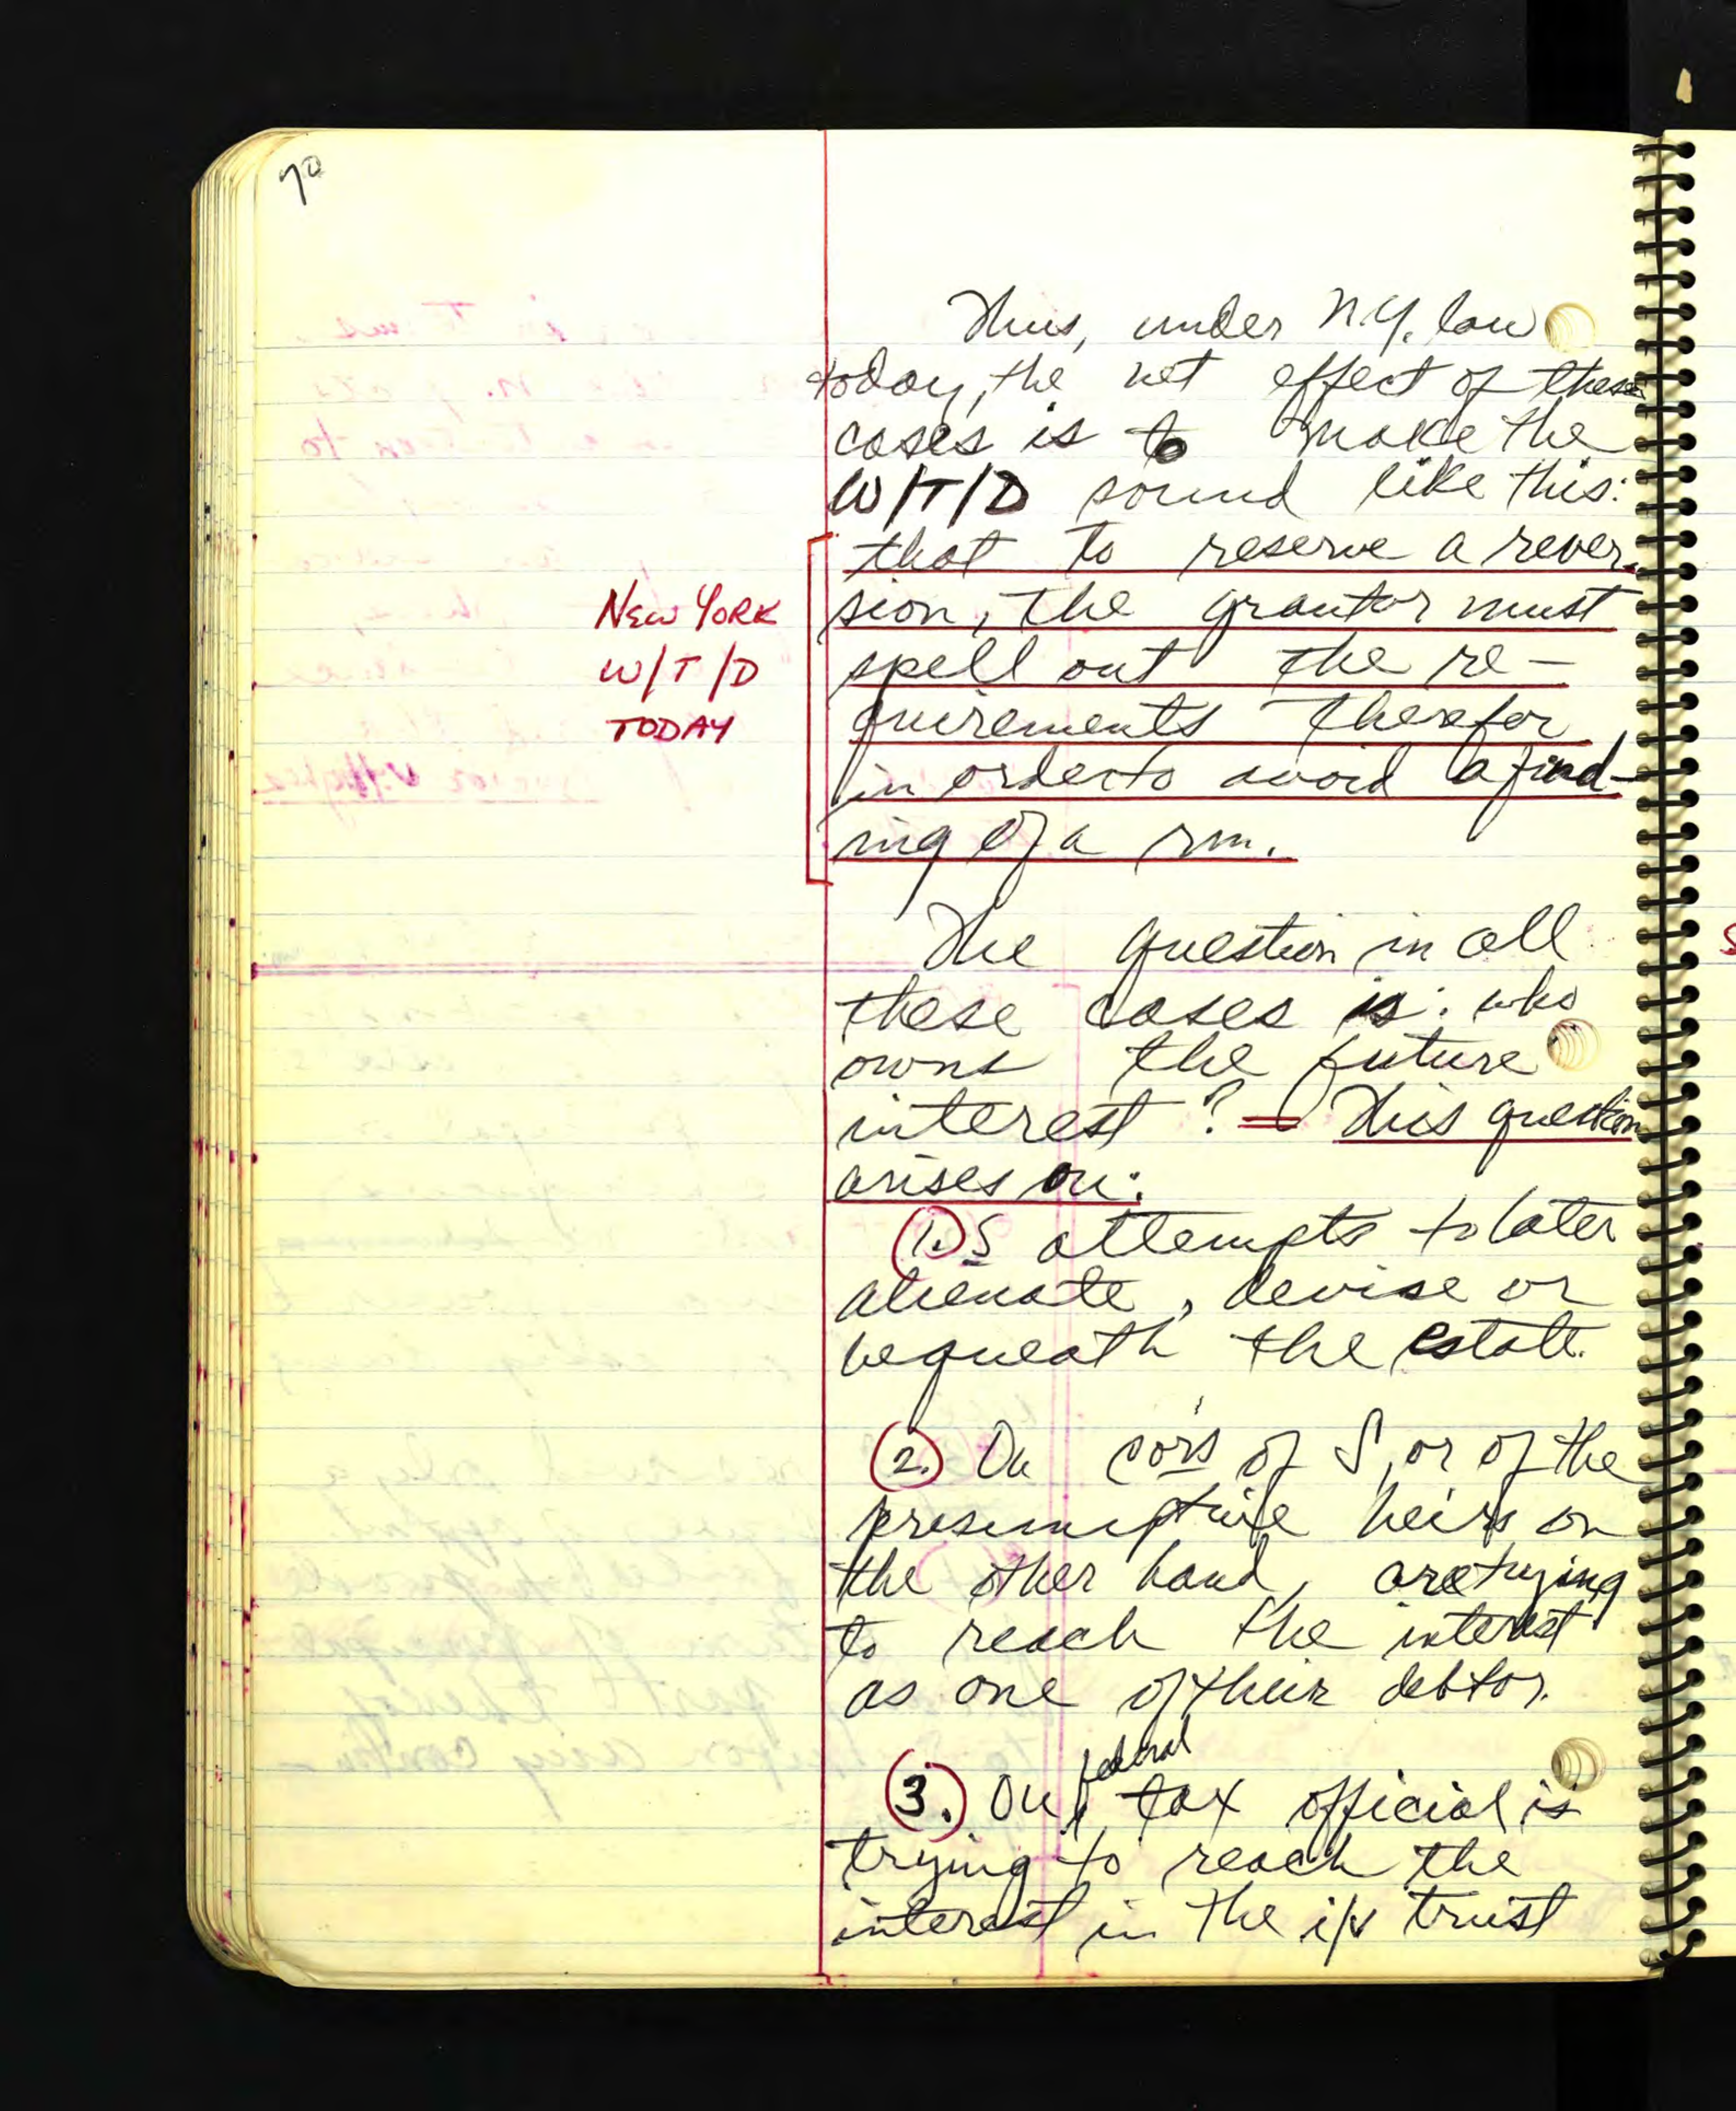 70
Thus, under N.Y. law
today, the net effect of these
cases is to make the
W/T/D sound like this:
that to reserve a rever-
sion, the grantor must
spell out the re-
quirements therefor
in order to avoid a find-
ing of a rm.
NEW YORK
W/T/D
TODAY
The question in all
these cases is: who
owns the future
interest? — This question
arises on:
1. S attempts to later
alienate, devise or
bequeath the estate.
2. On cors of S, or of the
presumptive heirs on
the other hand, are trying
to reach the interest
as one of their debtor.
3. On federal tax official is
trying to reach the
interest in the i/v trust